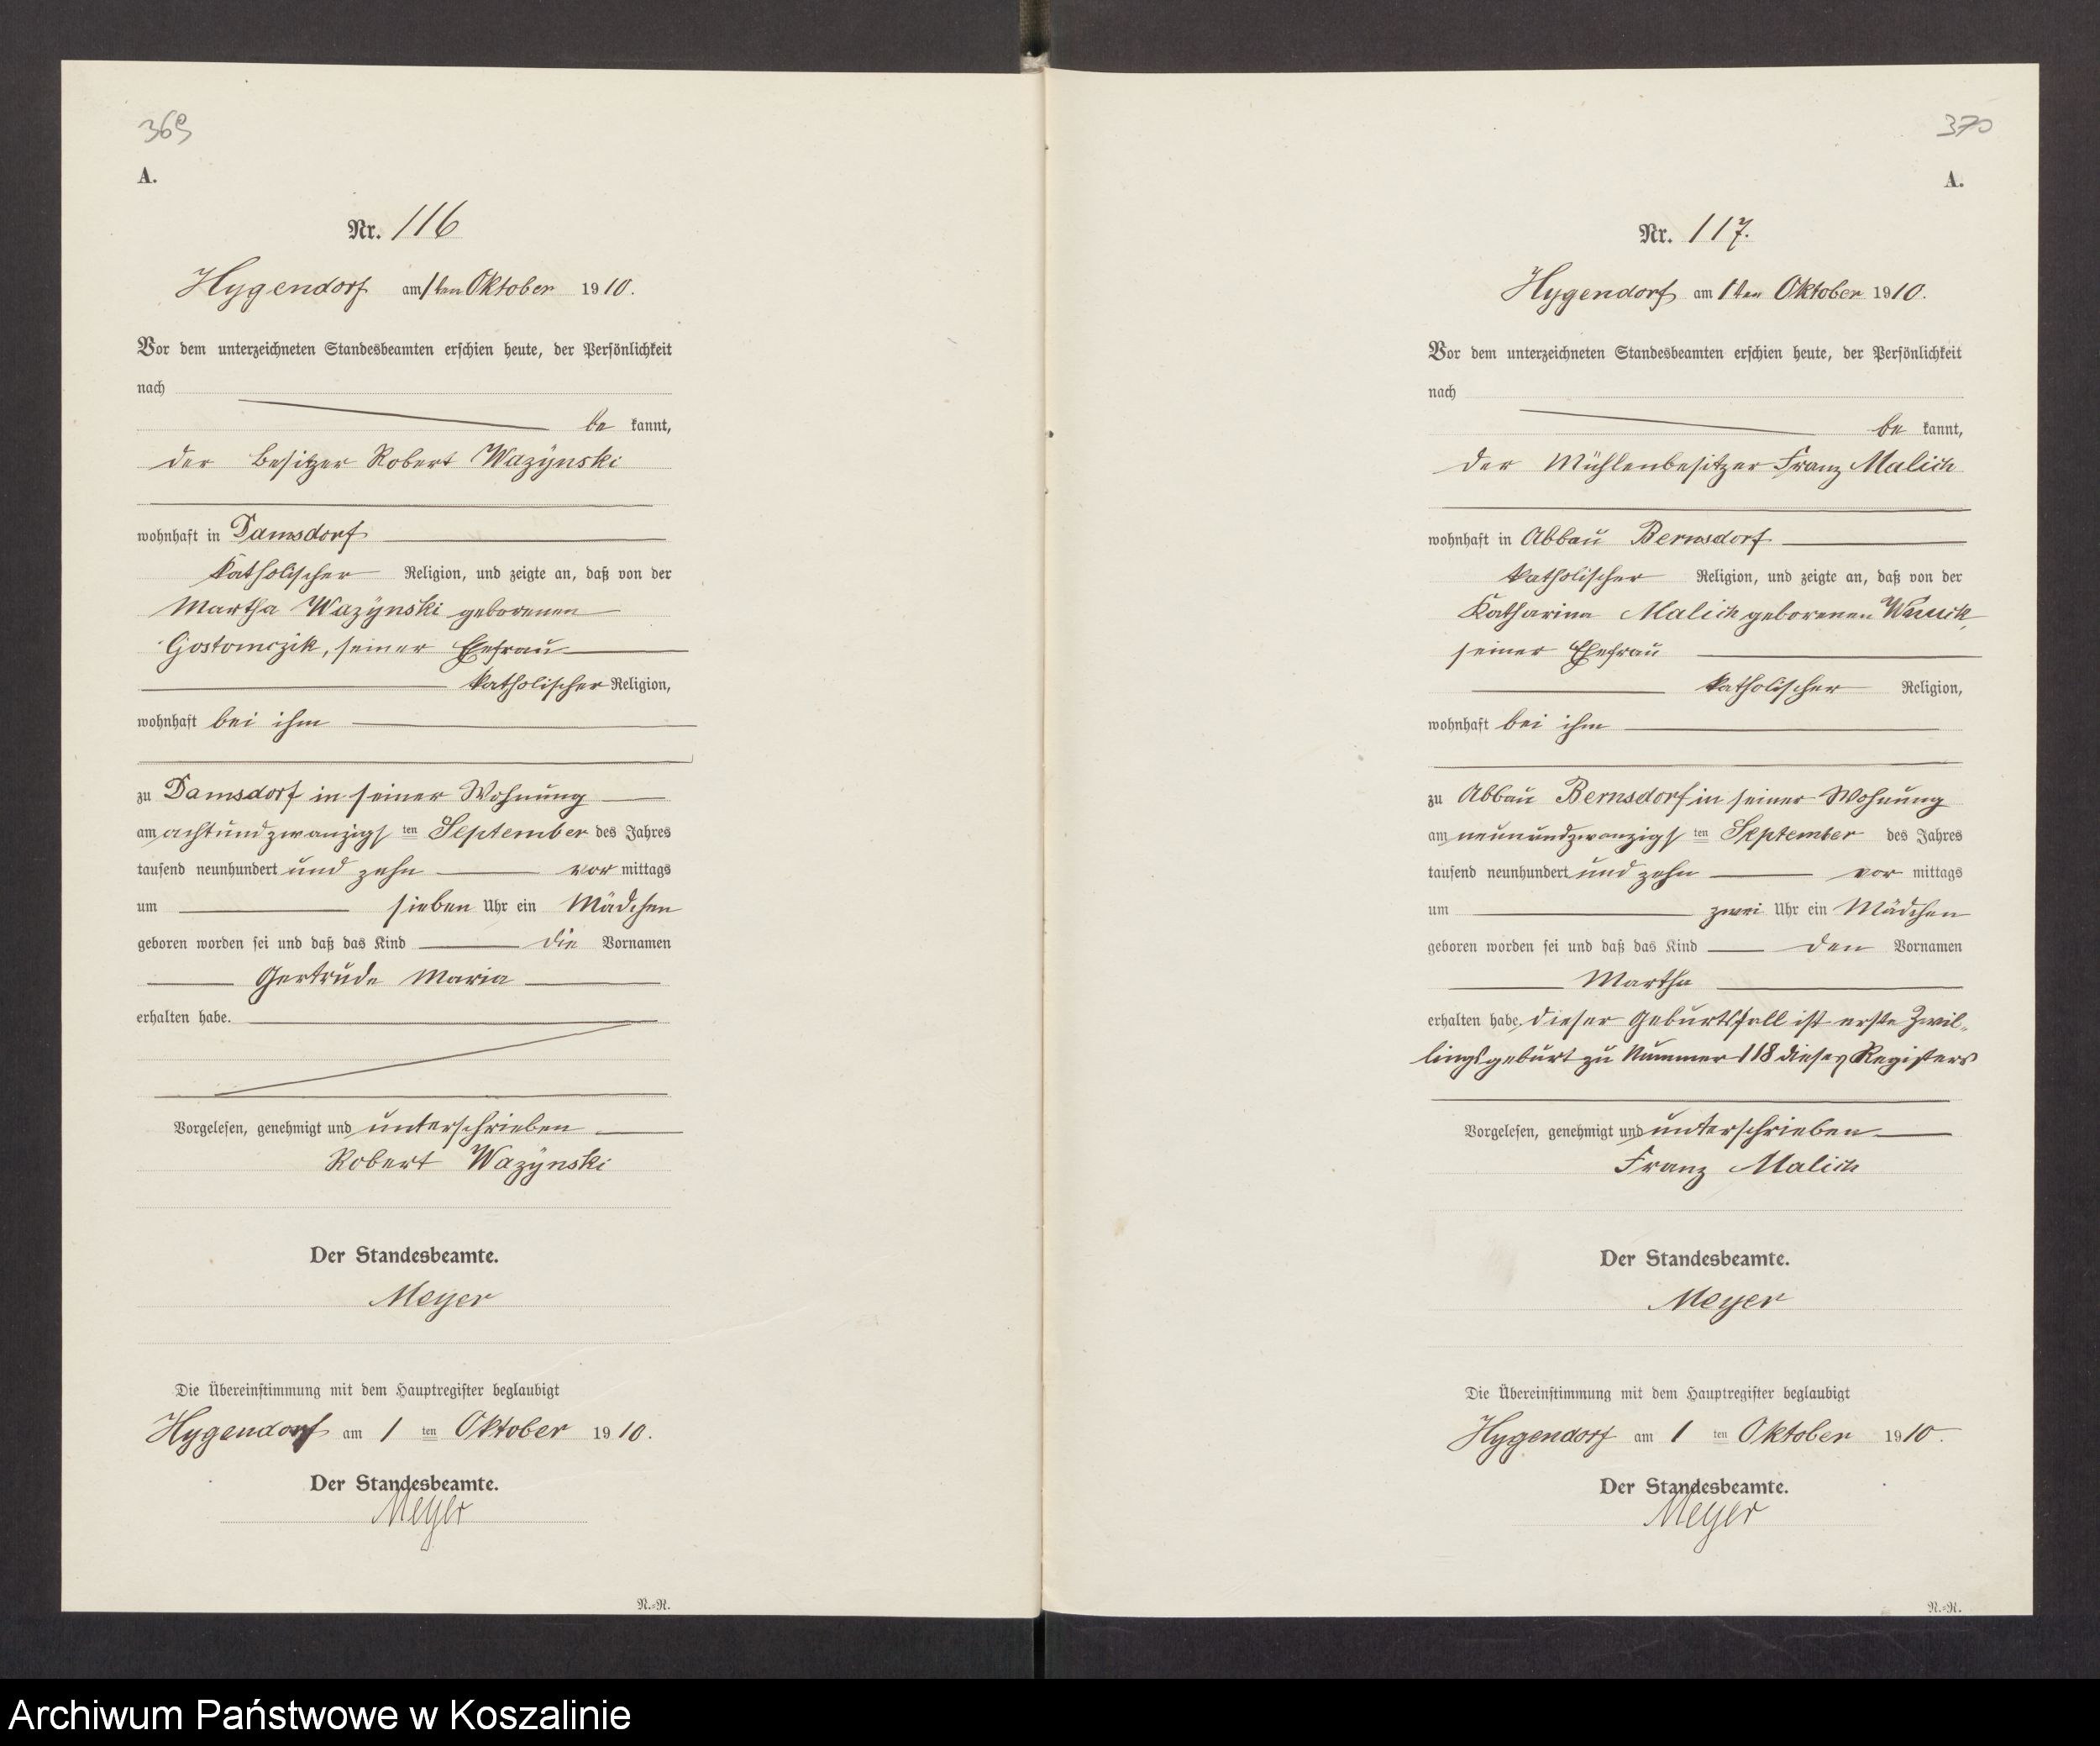 369
A.
Nr. 116
Hygendorf am 1ten Oktober 1910.
Vor dem unterzeichneten Standesbeamten erschien heute, der Persönlichkeit
nach
be kannt,
der Besitzer Robert Wazynski
wohnhaft in Damsdorf
katholischer Religion, und zeigte an, daß von der
Martha Wazynski geborenen
Gostomczik, seiner Ehefrau
katholischer Religion,
wohnhaft bei ihm
zu Damsdorf in seiner Wohnung
am achtundzwanzigs ten September des Jahres
tausend neunhundert und zehn vor mittags
um sieben Uhr ein Mädchen
geboren worden sei und daß das Kind die Vornamen
Gertrude Maria
erhalten habe.
Vorgelesen, genehmigt und unterschrieben
Robert Wazynski
Der Standesbeamte.
Meyer
Die Übereinstimmung mit dem Hauptregister beglaubigt
Hygendorf am 1 ten Oktober 1910.
Der Standesbeamte.
Meyer
N.=R.
370
A.
Nr. 117.
Hygendorf am 1ten Oktober 1910.
Vor dem unterzeichneten Standesbeamten erschien heute, der Persönlichkeit
nach
be kannt,
der Mühlenbesitzer Franz Malich
wohnhaft in Abbau Bernsdorf
katholischer Religion, und zeigte an, daß von der
Katharina Malich geborenen
seiner Ehefrau
katholischer Religion,
wohnhaft bei ihm
zu Abbau Bernsdorf in seiner Wohnung
am neunundzwanzigs ten September des Jahres
tausend neunhundert und zehn vor mittags
um zwei Uhr ein Mädchen
geboren worden sei und daß das Kind den Vornamen
Martha
erhalten habe. dieser Geburtsfall ist erste Zwil-
lingsgeburt zu Nummer 118 dieses Registers
Vorgelesen, genehmigt und unterschrieben
Franz Malich
Der Standesbeamte.
Meyer
Die Übereinstimmung mit dem Hauptregister beglaubigt
Hygendorf am 1 ten Oktober 1910.
Der Standesbeamte.
Meyer
N.=R.
Archiwum Państwowe w Koszalinie